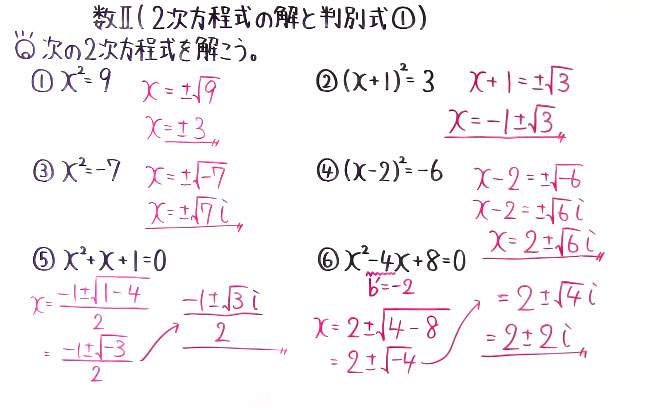 数Ⅱ(2次方程式の解と判別式①)
次の2次方程式を解こう。
① x²=9
x=±√9
x=±3
② (x+1)²=3
x+1=±√3
x=-1±√3
③ x²=-7
x=±√-7
x=±√7 i
④ (x-2)²=-6
x-2=±√-6
x-2=±√6 i
x=2±√6 i
⑤ x²+x+1=0
x=(-1±√(1-4))/2
=(-1±√-3)/2
(-1±√3 i)/2
⑥ x²-4x+8=0
b'=-2
x=2±√(4-8)
=2±√-4
=2±√4 i
=2±2i